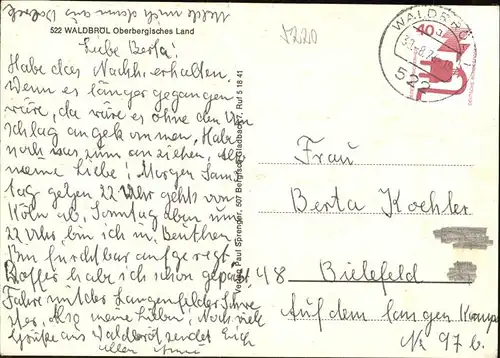 Melde mich dann aus
522 WALDBRÖL Oberbergisches Land
Liebe Berta!
Habe das Nachh. erhalten.
Wenn es länger gegangen
wäre, da wäre es ohne den
schlag angekommen, Habe
noch was zum anziehen,
meine Liebe! Morgen Sams
tag gegen 22 Uhr gehts von
Köln ab, Sonntag aben um
22 Uhr, bin ich in Beuthen.
Bin furchtbar aufgeregt
Koffer habe ich schon gepa
Fahre mit der Langenfelder Schwe
ster, Also meine Lieben! Noch viel
Grüße aus Waldbröl sendet Euch
allen
Verlag Paul Sprenger, 507 Bergisch Gladbach 7, Ruf 5 18 41
5220
WALDBRÖL
522
40
DEUTSCHE BUNDESPOST
Frau
Berta Koehler
48 Bielefeld
Auf dem langen Kampe
Nr 97 b.